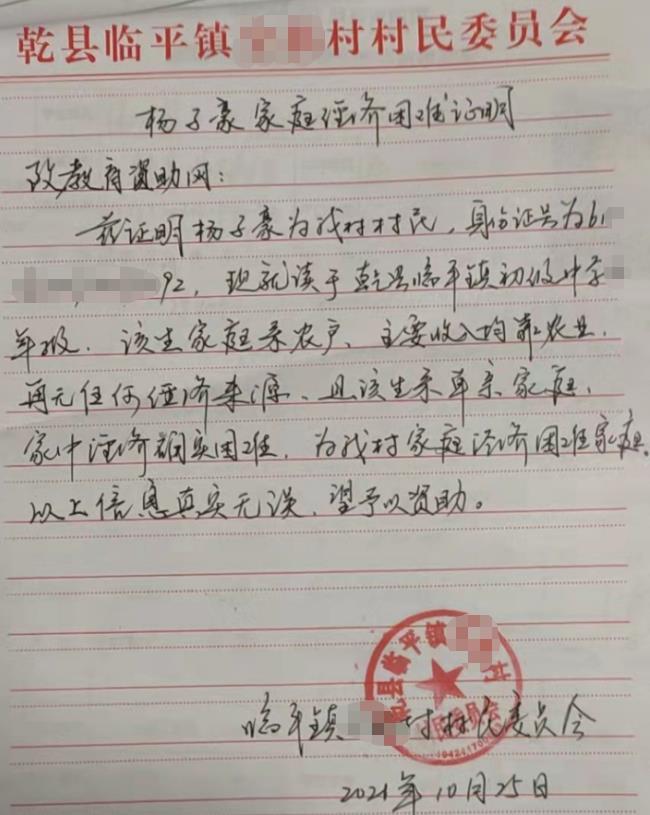 乾县临平镇 村村民委员会
杨子豪家庭经济困难证明
致教育资助网：
兹证明杨子豪为我村村民，身份证号为61
92，现就读于乾县临平镇初级中学
年级．该生家庭系农户、主要收入均靠农业，
再无任何经济来源、且该生系单亲家庭，
家中经济确实困难，为我村家庭经济困难家庭．
以上信息真实无误，望予以资助。
乾县临平镇 村
村民委员会
临平镇 村村民委员会
2021年10月25日